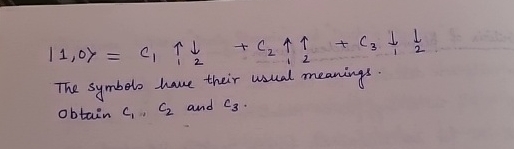 |1,0> = C₁ ↑₁ ↓₂ + C₂ ↑₁ ↑₂ + C₃ ↓₁ ↓₂
The symbols have their usual meanings.
Obtain C₁, C₂ and C₃.